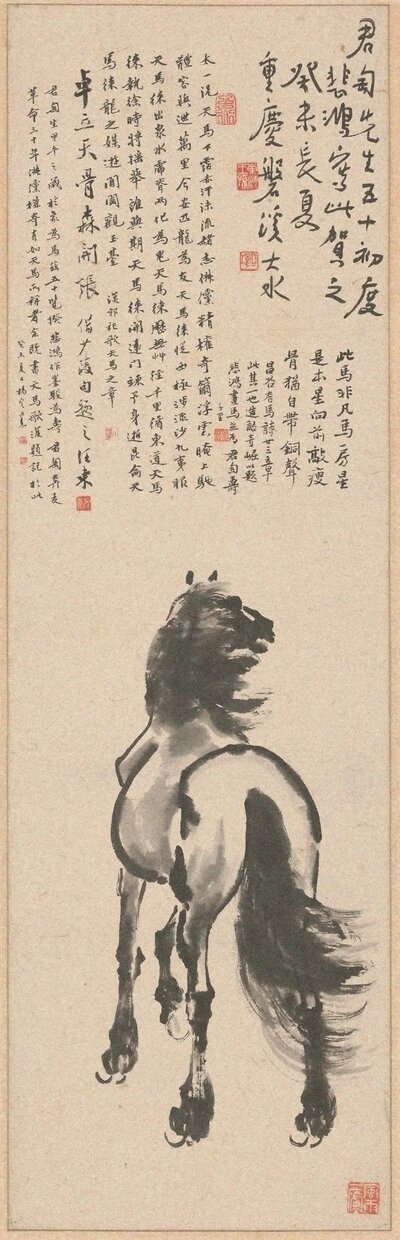 君匋先生五十初度
悲鴻寫此賀之
癸未長夏
重慶磐溪大水
此馬非凡馬房星
是本星向前敲瘦
骨猶自帶銅聲
昌谷有馬詩廿三首
此其一也造語奇崛以題
悲鴻畫馬並為君匋壽
太一況天馬下霑赤汗沫流赭志俶儻精權奇籋浮雲晻上馳
體容與迣萬里今安匹龍為友天馬徠從西極涉流沙九夷服
天馬徠出泉水虎脊兩化為鬼天馬徠歷無艸徑千里循東道天馬
徠執徐時將搖舉誰與期天馬徠開遠門竦予身逝昆侖天
馬徠龍之媒遊閶闔觀玉臺 漢郊祀歌天馬之章
卓立天骨森開張 借少陵句題之 汪東
君匋生甲午之歲於象為馬茲五十覽揆悲鴻作墨駿為壽 君匋奔走
革命三十年俶儻權奇有如天馬 余既書天馬歌復題記於此
癸未夏日